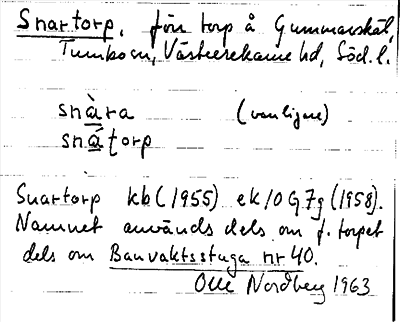 Snartorp, förr torp å Gummarskäl,
Tumbo sn, Västerrekarne hd, Söd. l.
snàra (vanligare)
snátorp
Snartorp kb (1955) ek/0 G7g (1958).
Namnet används dels om f. torpet
dels om Banvaktsstuga nr 40.
Olle Nordberg 1963